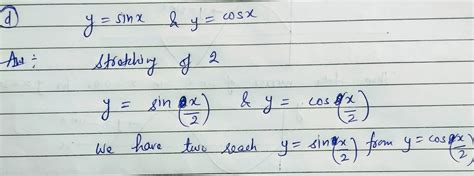 d) y = sinx & y = cosx
Ans : stretching of 2
y = sin(x/2) & y = cos(x/2)
we have two reach y = sin(x/2) from y = cos(x/2)